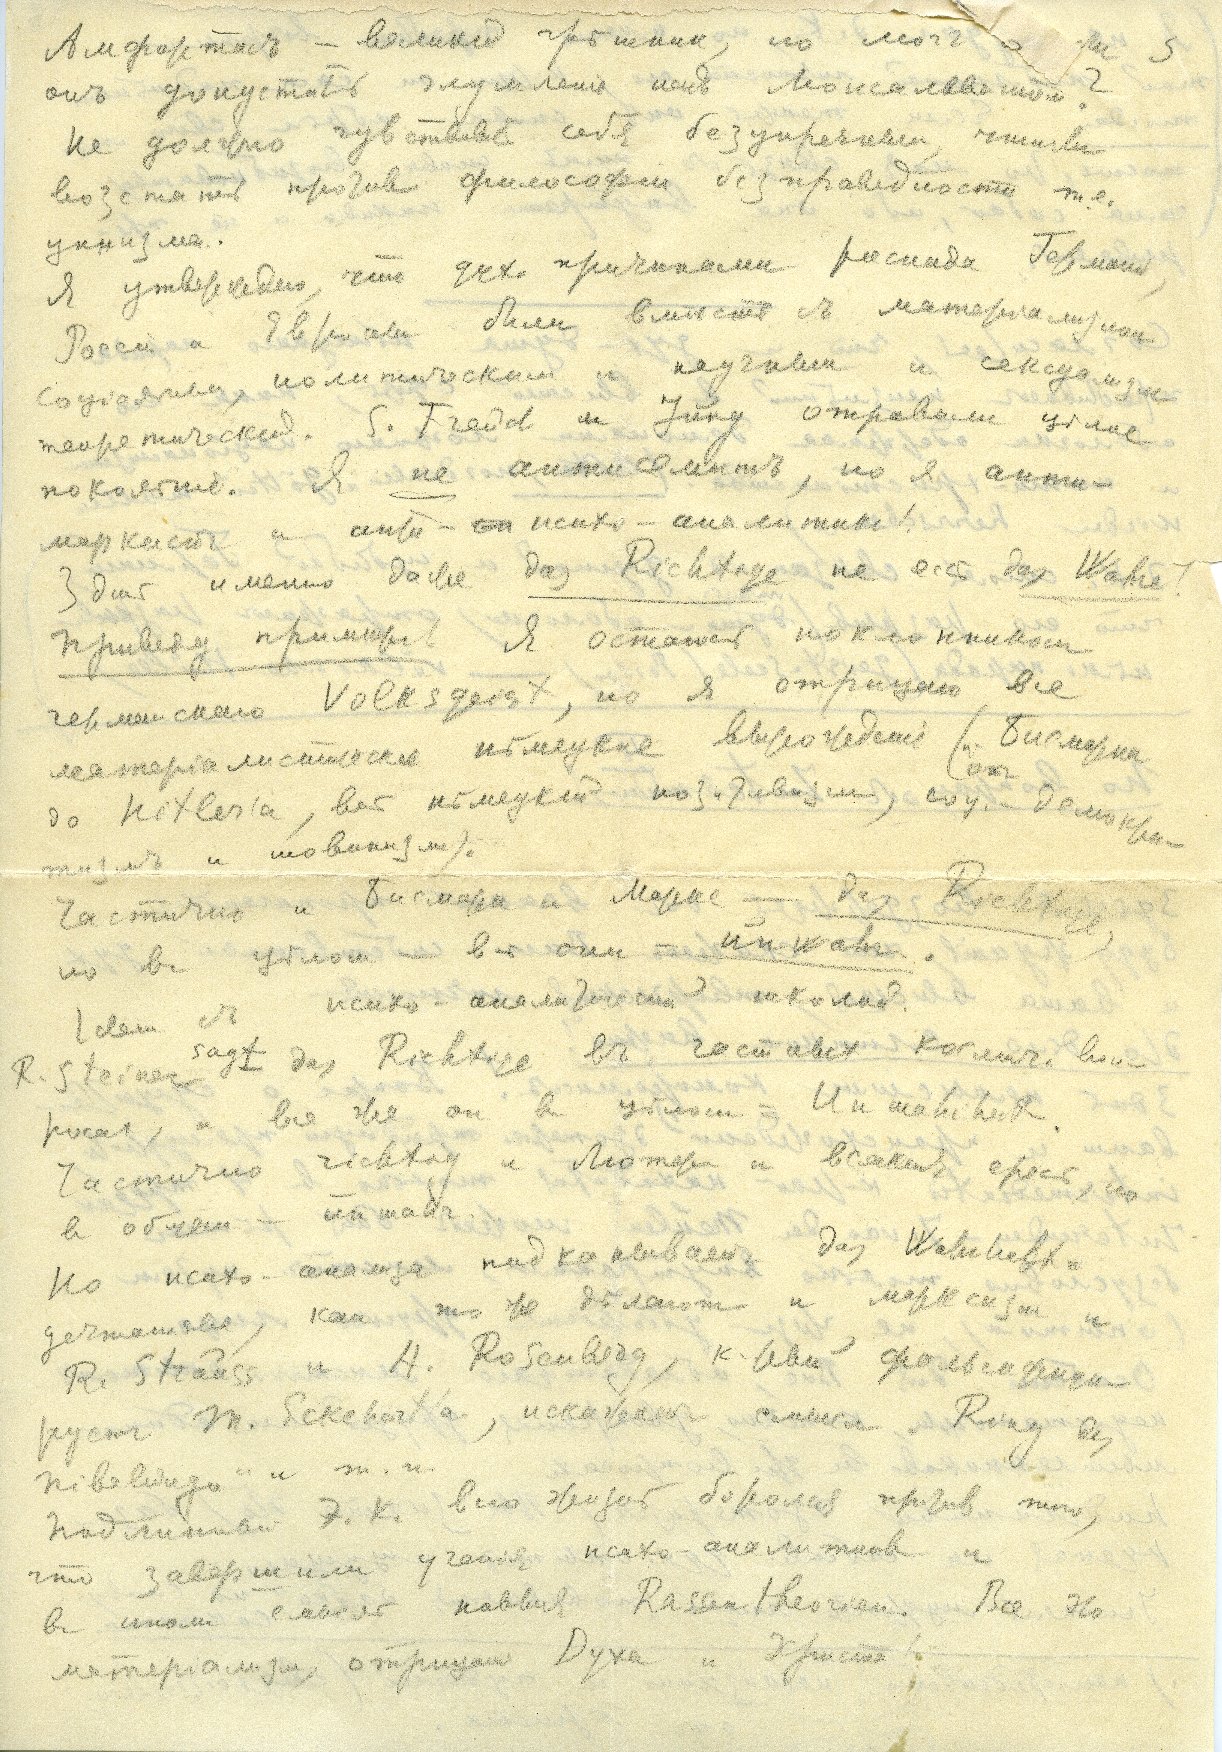 Амфортасъ – великий грѣшник, но могъ ли 5
онъ допустить глумленіе надъ Монсальватом?
Не должно чувствовать себя безупречным, чтобы
возстать против философіи безправедности т.е.
цинизма.
Я утверждаю, что дух. причинами распада Германіи,
Россіи и Европы были вмѣстѣ съ матеріализмом
соціальным, политическим и научным и сексуализм
теоретический. S. Freud и Jung отравили цѣлое
поколѣніе. Я не антисемитъ, но я анти-
марксистъ и анти- психо-аналитик!
Здѣсь именно даже das Richtige не есть das Wahre!
Приведу примѣръ! Я остаюсь поклонником
германскаго Volksgeist, но я отрицаю все
матеріалистическое нѣмецкое вырожденіе (от Бисмарка
до Hitler'а, весь нѣмецкій позитивизм, соц.-демокра-
тизмъ и шовинизм).
Частично и Бисмарк и Маркс – das Richtige,
но в цѣлом – все они – unwahr.
Idem съ психо-аналитической школой.
R. Steiner sagt das Richtige въ частных космич. воп-
росах, и все же он в цѣлом = Unwahrheit.
Частично richtig и Лютер и всякая ересь, но
в общем – unwahr.
Но психо-анализ подкапывает das Wahrheit'
дочтенное, как то же дѣлают и марксизм и
R. Strauss и A. Rosenberg, к-рый фальсифици-
рует M. Eckehart'а, искажает смысл „Ring des
Nibelungs" и т. п.
Подлинный Э. К. всю жизнь боролся против того,
что завершили ученія психо-аналитиков и
в ином смыслѣ новыя Rassentheorien. Все это
матеріализм, отрицаніе Духа и Христа!